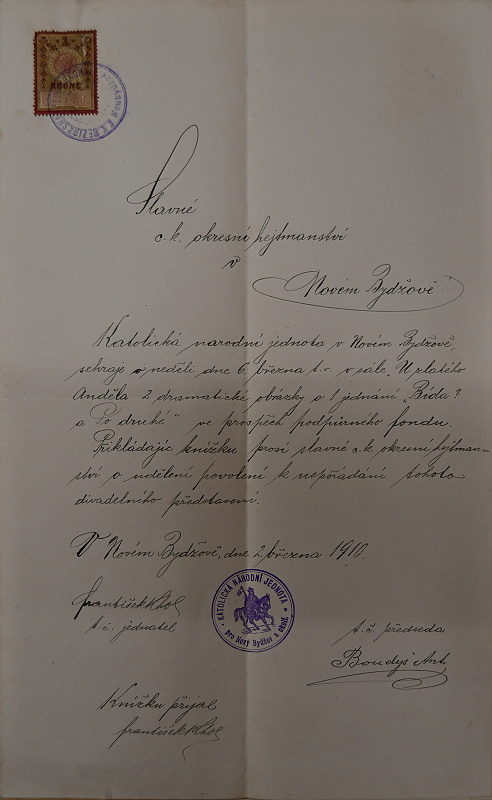 1
KRONE
K.K. BEZIRKS
Slavné
c. k. okresní hejtmanství
v
Novém Bydžově
Katolická narodní jednota v Novém Bydžově
sehraje v neděli dne 6. března t.r. v sále „U zlatého
Anděla" 2 dramatické obrázky o 1 jednání „Bída"
a „Po druhé" ve prospěch podpůrného fondu.
Přikládajíc knížku prosí slavné c.k. okresní hejtman-
ství o udělení povolení k uspořádání tohoto
divadelního představení.
V Novém Bydžově, dne 2. března 1910.
František
t. č. jednatel
KATOLICKÁ NÁRODNÍ JEDNOTA
pro Nový Bydžov a okolí
t. č. předseda
Boudyš Ant.
Knížku přijal
František